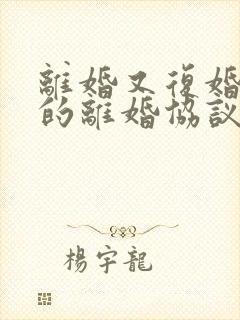 離婚又復婚
的離婚協議
楊宇龍